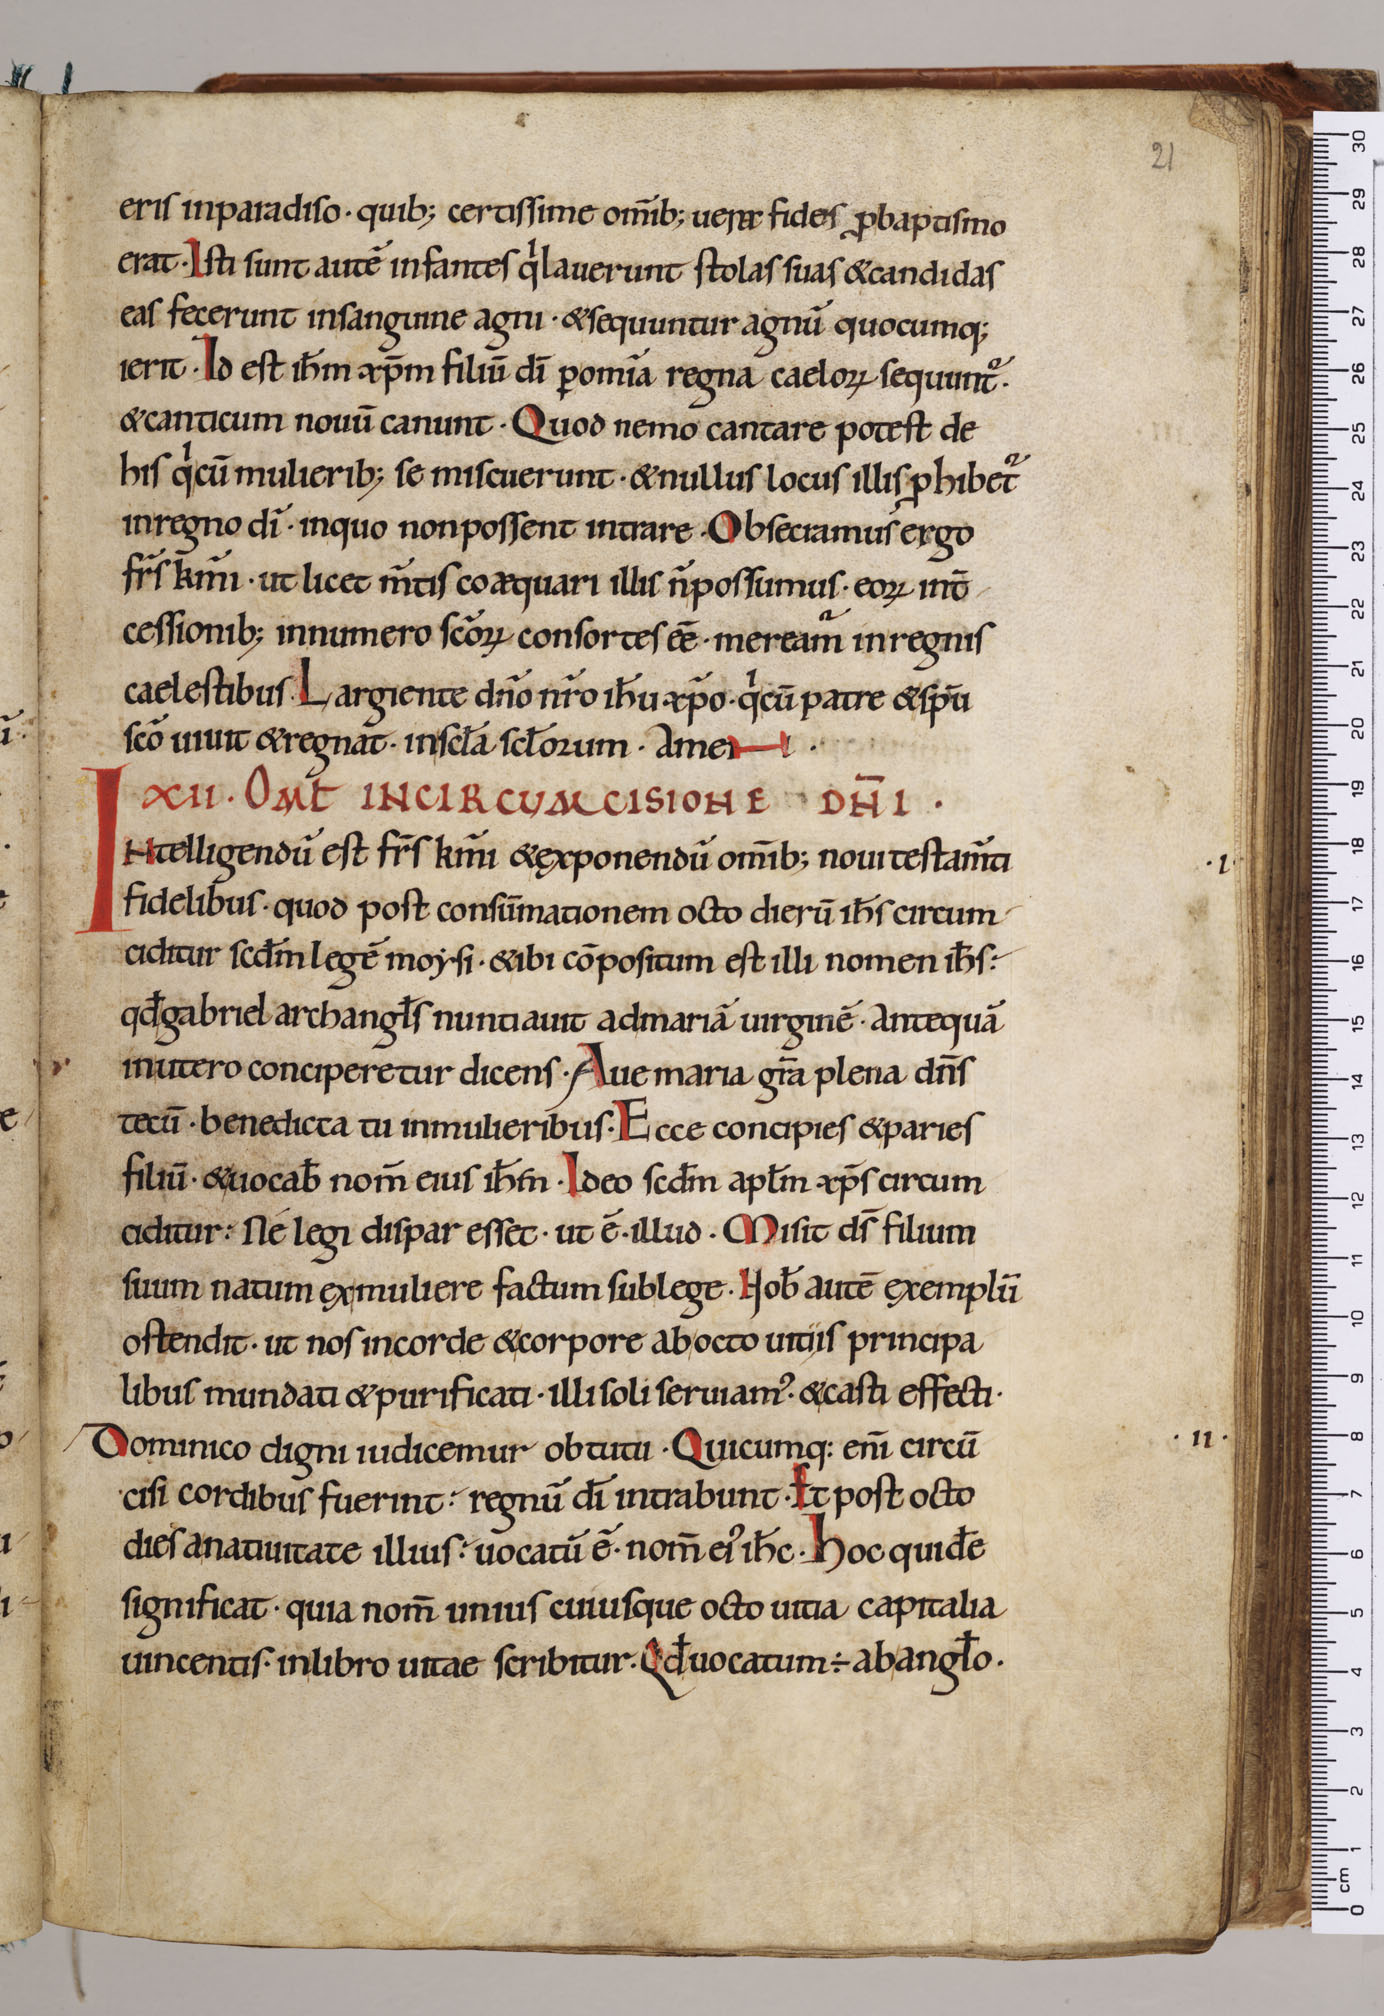 21
eris inparadiso · quib; certissime om̄ib; ueræ fides ꝓbaptismo
erat · Isti sunt autē infantes qͥlauerunt stolas suas &candidas
eas fecerunt insanguine agni · &sequuntur agnū quocumq;
ierit · Id est ih̄m xp̄m filiū dī ꝑomīa regna caeloꝝ sequunt᷑ ·
&canticum nouū canunt · Quod nemo cantare potest de
his qͥcū mulierib; se miscuerunt · &nullus locus illis ꝓhibet᷑
inregno dī · inquo nonpossent intrare · Obsecramus ergo
fr̄s km̄i · ut licet m̄tis coæquari illis n̄possumus · eoꝝ int̄
cessionib; innumero sc̄oꝝ consortes eē · meream᷑ inregnis
caelestibus · Largiente dn̄o nr̄o ih̄u xp̄o · qͥcū patre &sp̄u
sc̄o uiuit &regnat · inscl̄a scl̄orum · Amen ·
XII · OMĒ INCIRCUMCISIONE DN̄I ·
Intelligendū est fr̄s km̄i &exponendū om̄ib; noui testam̄ti
· i ·
fidelibus · quod post consūmationem octo dierū ih̄s circum
ciditur scd̄m legē moẏsi · &ibi cōpositum est illi nomen ih̄s :
qd̄gabriel archangl̄s nuntiauit admariā uirginē · Antequā
inutero conciperetur dicens · Aue maria gr̄a plena dn̄s
tecū · benedicta tu inmulieribus · Ecce concipies &paries
filiū · &uocab̄ nom̄ eius ih̄m · Ideo scd̄m apl̄m xp̄s circum
ciditur : Né legi dispar esset · ut ē · illud · Misit ds̄ filium
suum natum exmuliere factum sublege · Hob̄ autē exemplū
ostendit · ut nos incorde &corpore abocto uitiis principa
libus mundati &purificati · illi soli seruiamꝰ · &casti effecti ·
Dominico digni iudicemur obtutu · Quicumq: enī circū
· ii ·
cisi cordibus fuerint : regnū dī intrabunt · Et post octo
dies anatiuitate illius : uocatū ē · nom̄ eiꝰ ih̄c · hoc quidē
significat · quia nom̄ unius cuiusque octo uitia capitalia
uincentis · inlibro uitae scribitur · Qd̄uocatum ÷ abangl̄o ·